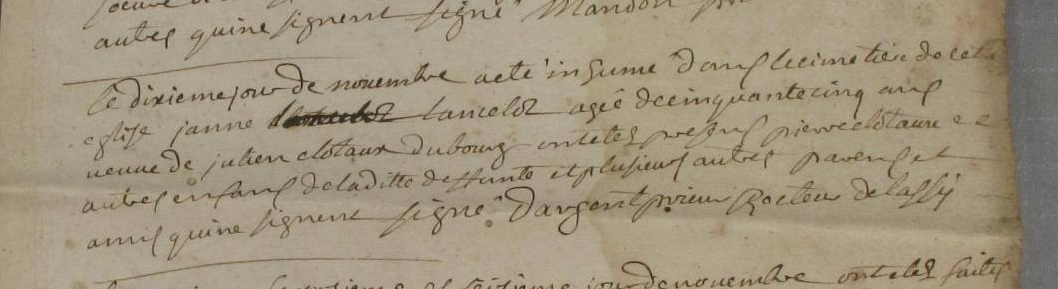 autres quine signent signé Mandon
Le dixieme jour de novembre a eté inhumé dans le cimetiere de cette
eglise janne lancelot agée de cinquante cinq ans
veuve de julien clotaux du bourg ont etez presens pierre clotaux et
autres enfans de la ditte deffunte et plusieurs autres parens et
amis quine signent signé Dargent prieur Recteur de lassy
et seizieme jour de novembre ont etez faites